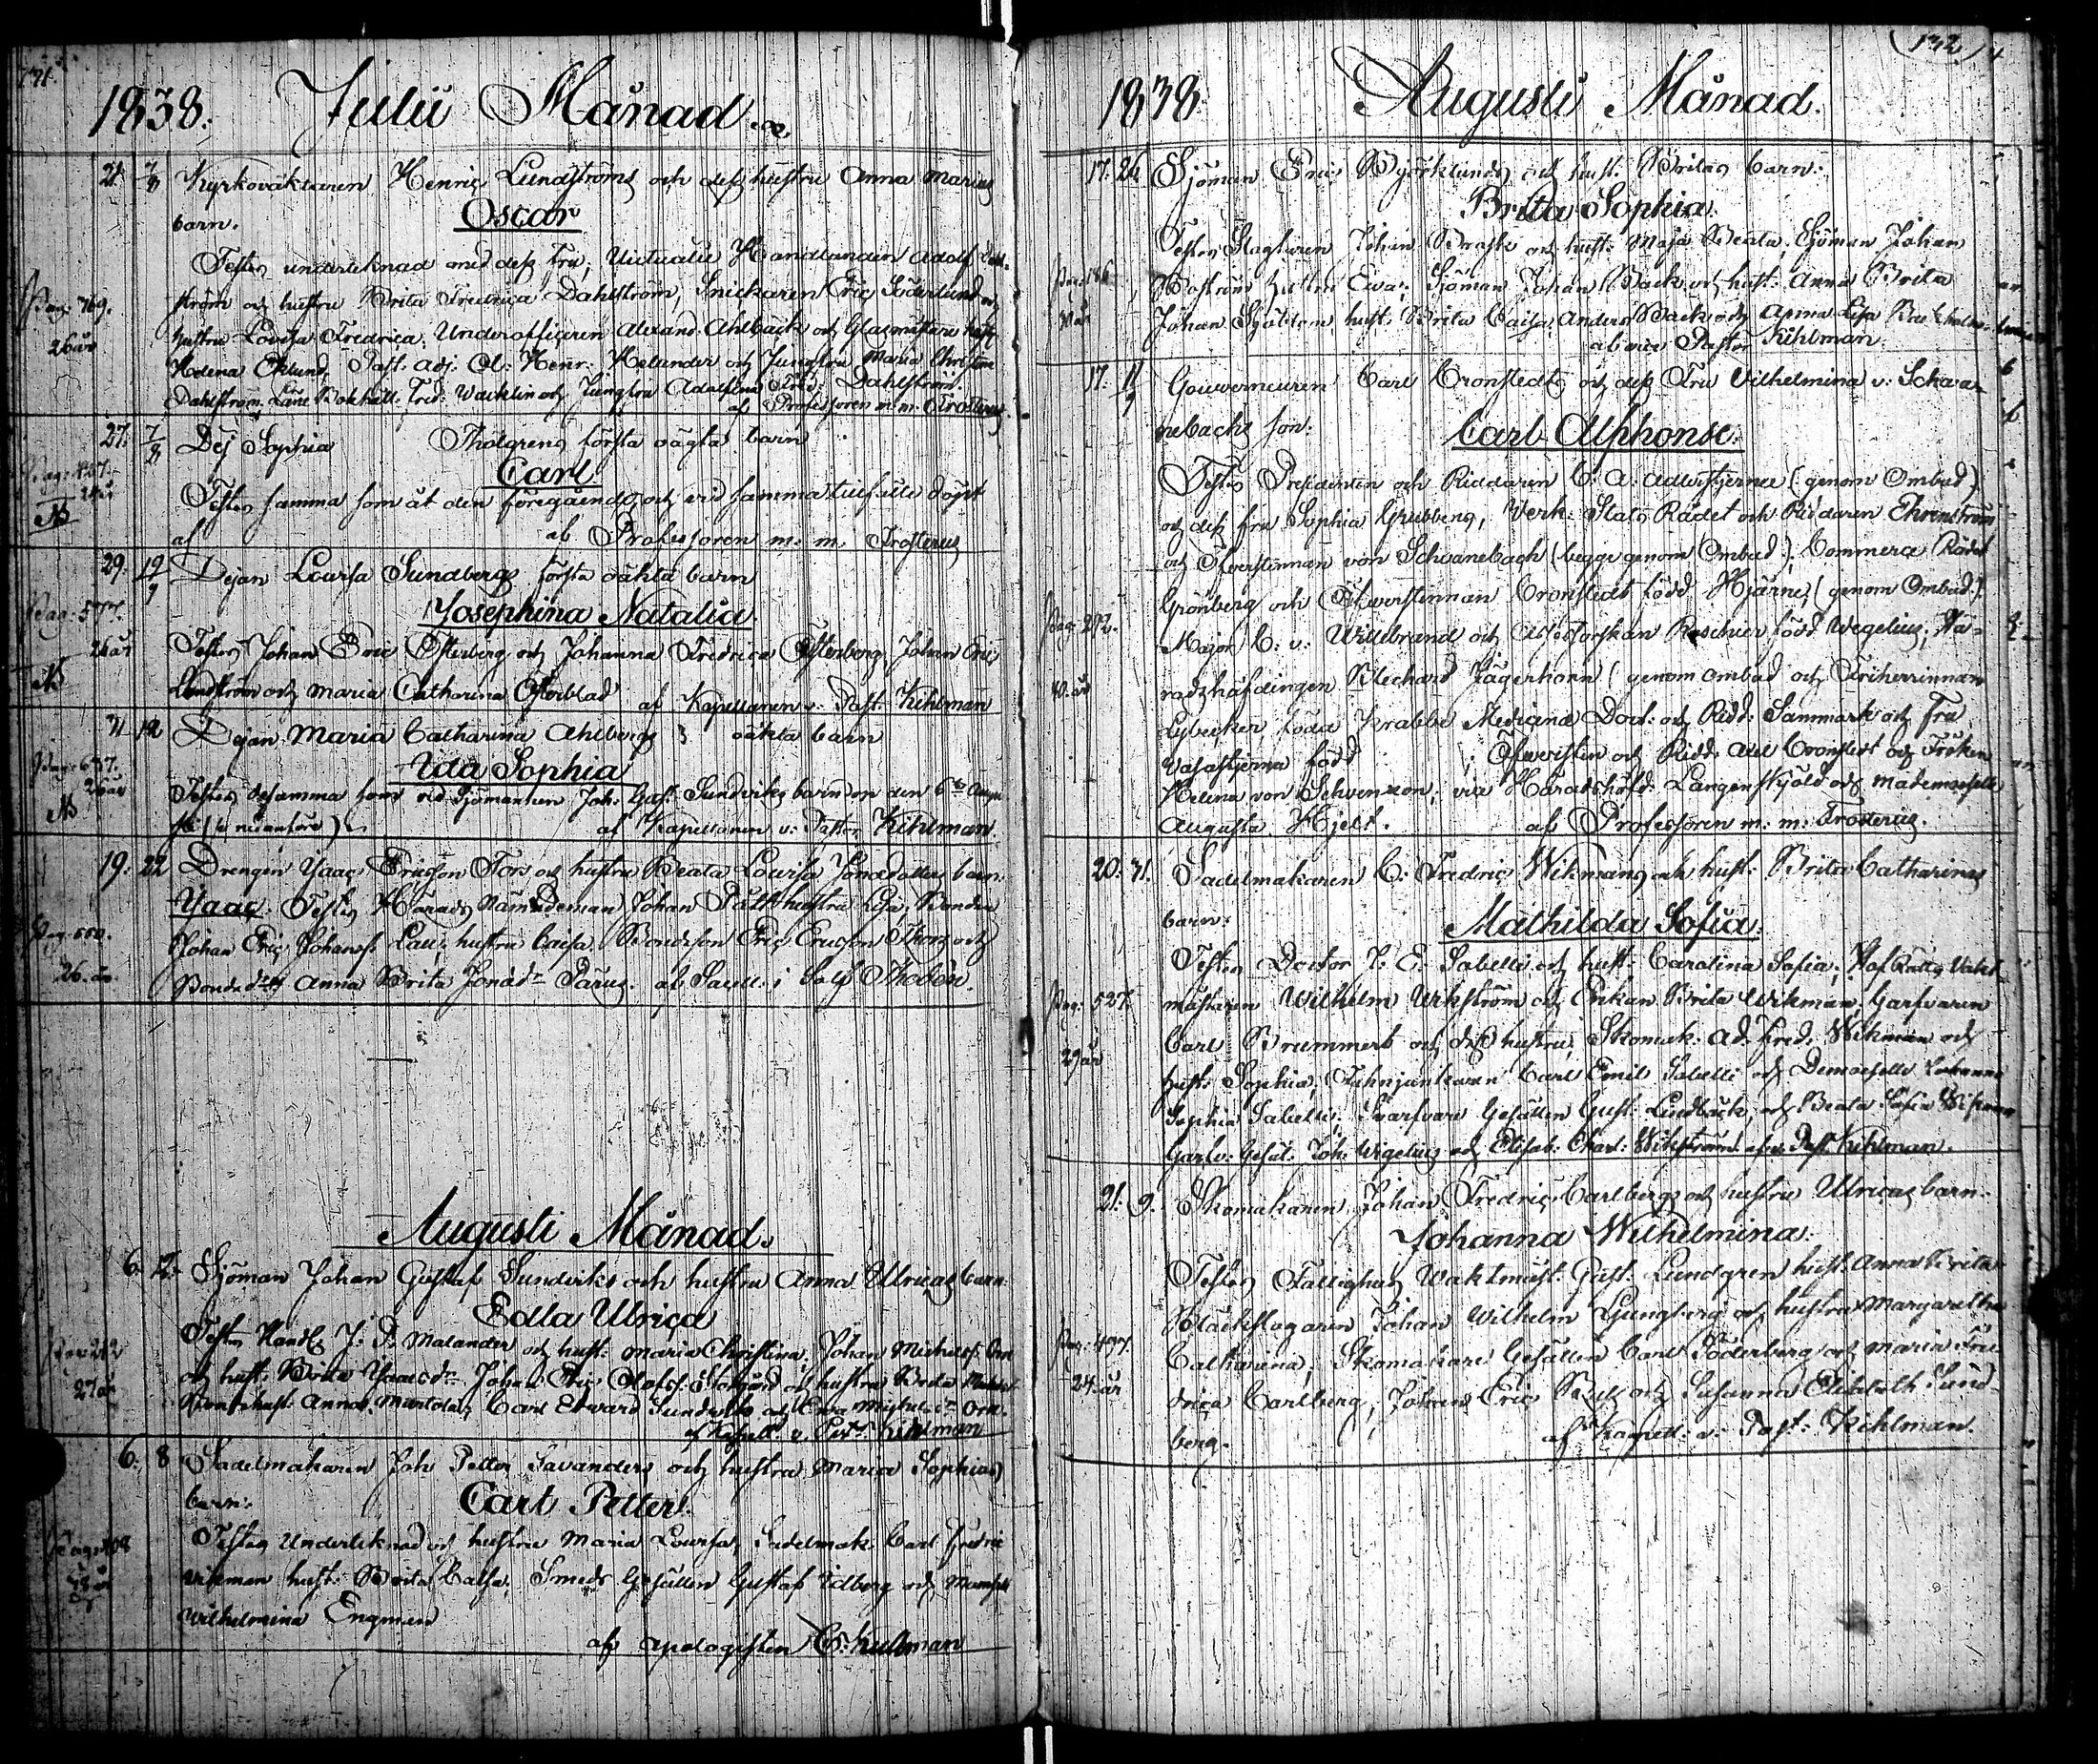 1838. Julii Månad
21. 7/8 Kyrkovaktaren Henric Lundströms och dess hustru Anna Marias
barn. Oscar
Testes undertecknad med dess Fru, Victualie Handlanden Adolf
ström och hustru Brita Fredrica Dahlström, Snickaren Eric Söderlund och
Pag. 769.
hustru Lovisa Fredrica, Underofficeren Alexand. Ahlbäck och Glasmästare
26 år
Helena Eklund, Past. Adj. Henr. Helander och Jungfru Maria Christina
Dahlström, Läne Bokhåll. Fred. Wacklin och Jungfru Adolfina Fred. Dahlström.
af Professoren m.m. Frosterus
27. 7/8 Dej. Sophia Thölgrens första oägta barn
Carl
Testes samma som åt den föregående, och vid samma tillfälle döpt
af af Professoren m. m. Frosterus
29. 12/9 Dejan Lovisa Sundbergs första oäkta barn
Josephina Natalia
26 år Testes Johan Eric Österberg och Johanna Fredrica Österberg, Johan Eric
Lindström och Maria Catharina Österblad af Kapellanen v. Past. Kihlman
31 12 Dejan Maria Catharina Ahlbergs 3 oäkta barn
Ida Sophia
26 år
Testes desamma som vid Sjömannen Joh. Gust. Sundviks barndop den 6te Augu
sti (se nedanföre) af Kapellanen v. Pastor Kihlman.
19. 22 Drengen Isaac Ericson Fors och hustru Beata Lovisa Jonædotters barn.
Isaac. Testes Härads Nämndeman Johan Pått hustru Lisa, Bonden
Johan Eric Johanss. hustru Caisa, Bondeson Eric Ericson Thors och
26. år
Bonde dottr Anna Brita Jonædr Pärus. af Sacell. i Solf Thodén.
Augusti Månad.
6. 12. Sjöman Johan Gustaf Sundviks och hustru Anna Ulricas barn.
Edla Ulrica
Testes Handl. J. P. Malander och hust. Maria Christina, Johan Michelss.
Pag. 212
och hust. Brita Isaacsdr. Johan Eric Olofss. Storgård och hustru Brita
27 år
hust. Anna Martola, Carl Edvard Sundvik och Eva Michelsdr Orn.
af Kapell. v. Past. Kihlman
6. 8 Sadelmakaren Joh. Petter Savanders och hustru Maria Sophias
barn. Carl Petter.
Testes Undertecknad och hustru Maria Lovisa, Sadelmak. Carl Fredric
Vikman hust. Brita Caisa, Smeds Gesällen Gustaf Idberg och Mamsell
Wilhelmina Engman
af apologisten C. Kullman
132
1838 Augusti Månad.
17. 26 Sjöman Eric Björklunds och hust. Britas barn.
Brita Sophia.
Testes Slagtaren Johan Brask och hust. Maja Beata, Sjöman Johan
Pag. 186
Boström hustru Eva, Sjöman Johan Back och hust. Anna Brita
Johan Sjöblom hust. Brita Caisa, Anders Back och Anna Lisa
af vice Pastor Kihlman
17. 11/9 Gouverneuren Carl Cronstedts och dess Fru Vilhelmina v. Schwa-
nebachs son. Carl Alphonse.
Testes Presidenten och Riddaren C. A. Adlerstjerna (genom Ombud)
och dess fru Sophia Grubberg, Verk. Stats Rådet och Riddaren Ehrenström
och Öfverstinnan von Schvanebach (begge genom Ombud), Commerce Rådet
Grönberg och Öfverstinnan Cronstedt född Hjärne, (genom Ombud)
Pag. 292.
Major C. v. Willebrand och Assessorskan Roschier född Wegelius, Hä-
40. år
radshöfdingen Blechard Jägerhorn (genom ombud och Friherrinnan
Lybecker, född Krabbe Medicinæ Doct. och Ridd. Sanmark och Fru
Vasastjerna född ; Öfversten och Ridd. Axel Cronstedt och Fröken
Helena von Schvenson; vice Häradshöfd. Langenskjöld och Mademoiselle
Augusta Hjelt. af Professoren m. m. Frosterus.
20. 31. Sadelmakaren C. Fredric Wikmans och hust. Brita Catharinas
barn. Mathilda Sofia.
Testes Doctor J. E. Sabelli och hust. Carolina Sofia, Hof Rätts Vakt
Pag. 527.
mästaren Wilhelm Wikström och Enkan Brita Wikman, Garfvaren
29 år
Carl Brummert och dess hustru, Skomak. Ad. Fred. Wikman och
hust. Sophia, Fahnjunkaren Carl Emil Sabelli och Demoiselle Johanna
Sophia Sabelli, Svarfvare Gesällen Gust. Lindbäck, och Beata Sofia Wikman
Garfv. Gesäl. Joh. Wegelius och Elisab. Charl. Wikström. af v. Past. Kihlman.
21. 9. Skomakaren Johan Fredric Carlbergs och hustru Ulricas barn.
Johanna Wilhelmina.
Testes Fattighus Waktmäst. Gust. Lundgren hust. Anna Brita
Bläckslagaren Johan Wilhelm Ljungberg och hustru Margaretha
Pag. 477.
Catharina, Skomakare Gesällen Carl Söderberg och Maria Fre
24. år
drica Carlberg, Johan Eric och Susanna Elisabeth Sund-
berg. af Kapell. v. Past. Kihlman.